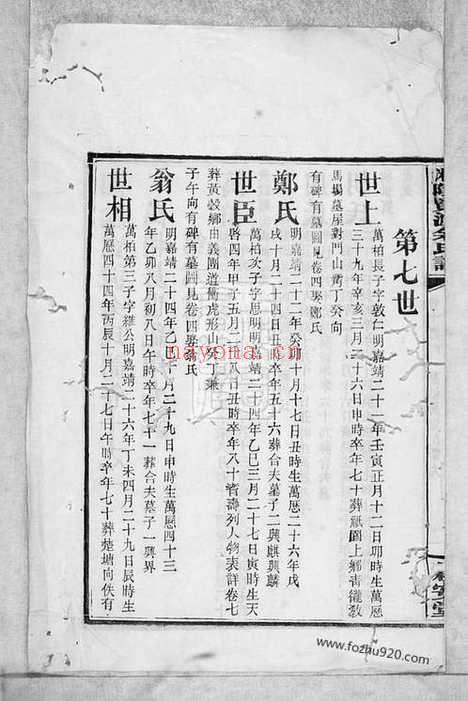 第七世
世上
萬柏長子字敦仁明嘉靖二十一年壬寅正月十二日卯時生萬歷
三十九年辛亥三月二十六日申時卒年七十葬紙圖上鄉青
馬場墓屋對門山 丁癸向
有碑有墓圖見卷四娶鄭氏
鄭氏
明嘉靖二十二年癸卯十月十七日丑時生萬歷二十六年戊
戌十月二十四日丑時卒年五十六葬合夫墓子二興麒興麟
世臣
萬柏次子字思明明嘉靖二十四年乙巳三月二十七日寅時生天
啓四年甲子五月二十八日丑時卒年八十 壽列人物表詳卷七
葬黃穀鄉由義團道 虎形山癸丁兼
子午向有碑有墓圖見卷四娶翁氏
翁氏
明嘉靖二十四年乙巳十月二十九日申時生萬歷四十三
年乙卯八月初八日午時卒年七十一葬合夫墓子一興界
世相
萬柏第三子字 公明嘉靖二十六年丁未四月二十九日辰時生
萬歷四十四年丙辰十月二十七日午時卒年七十葬楚塘向佚有
nayona.cn
www.fozhu920.com